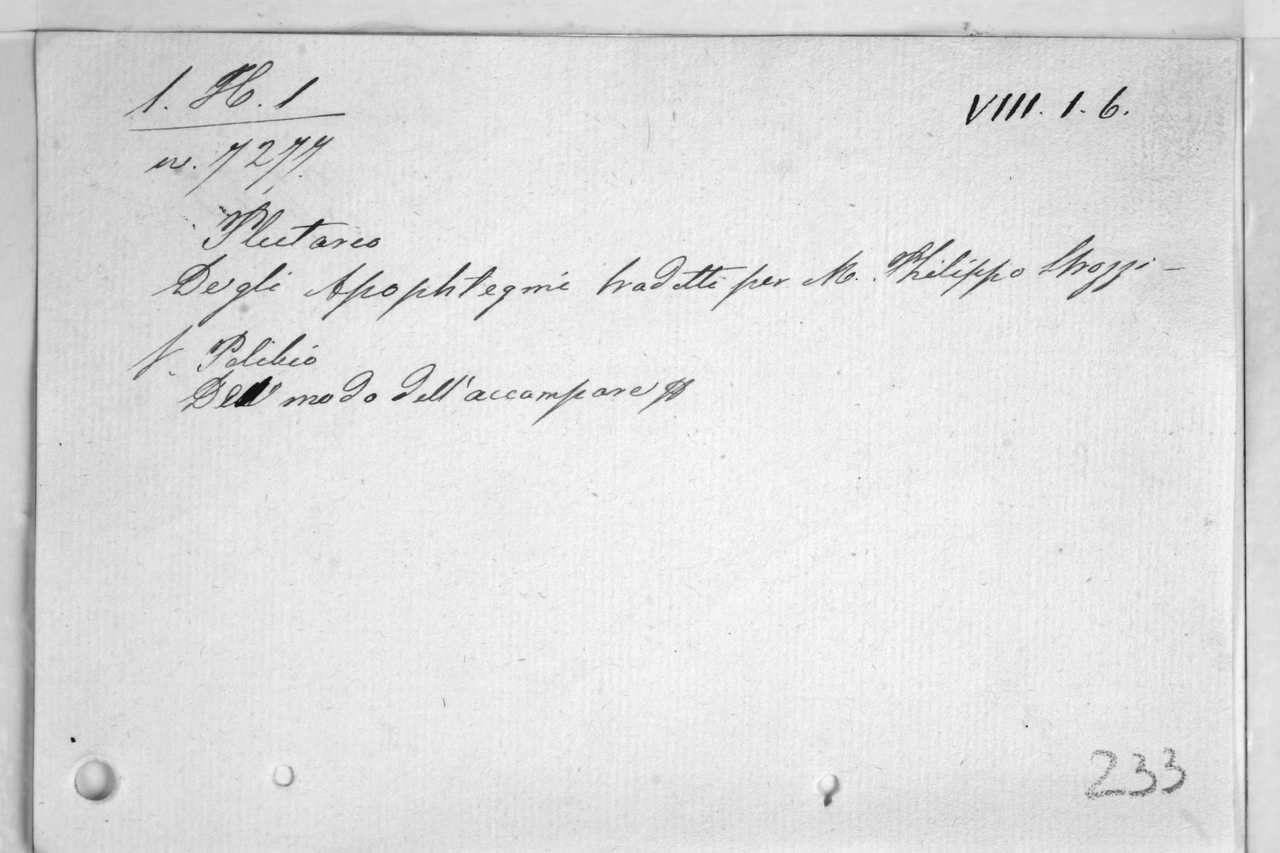 1. H. 1
VIII. 1. 6.
nr. 7277.
Plutarco
Degli Apophtegmi tradotti per M. Philippo Strozzi -
v. Polibio
Del modo dell'accampare
233